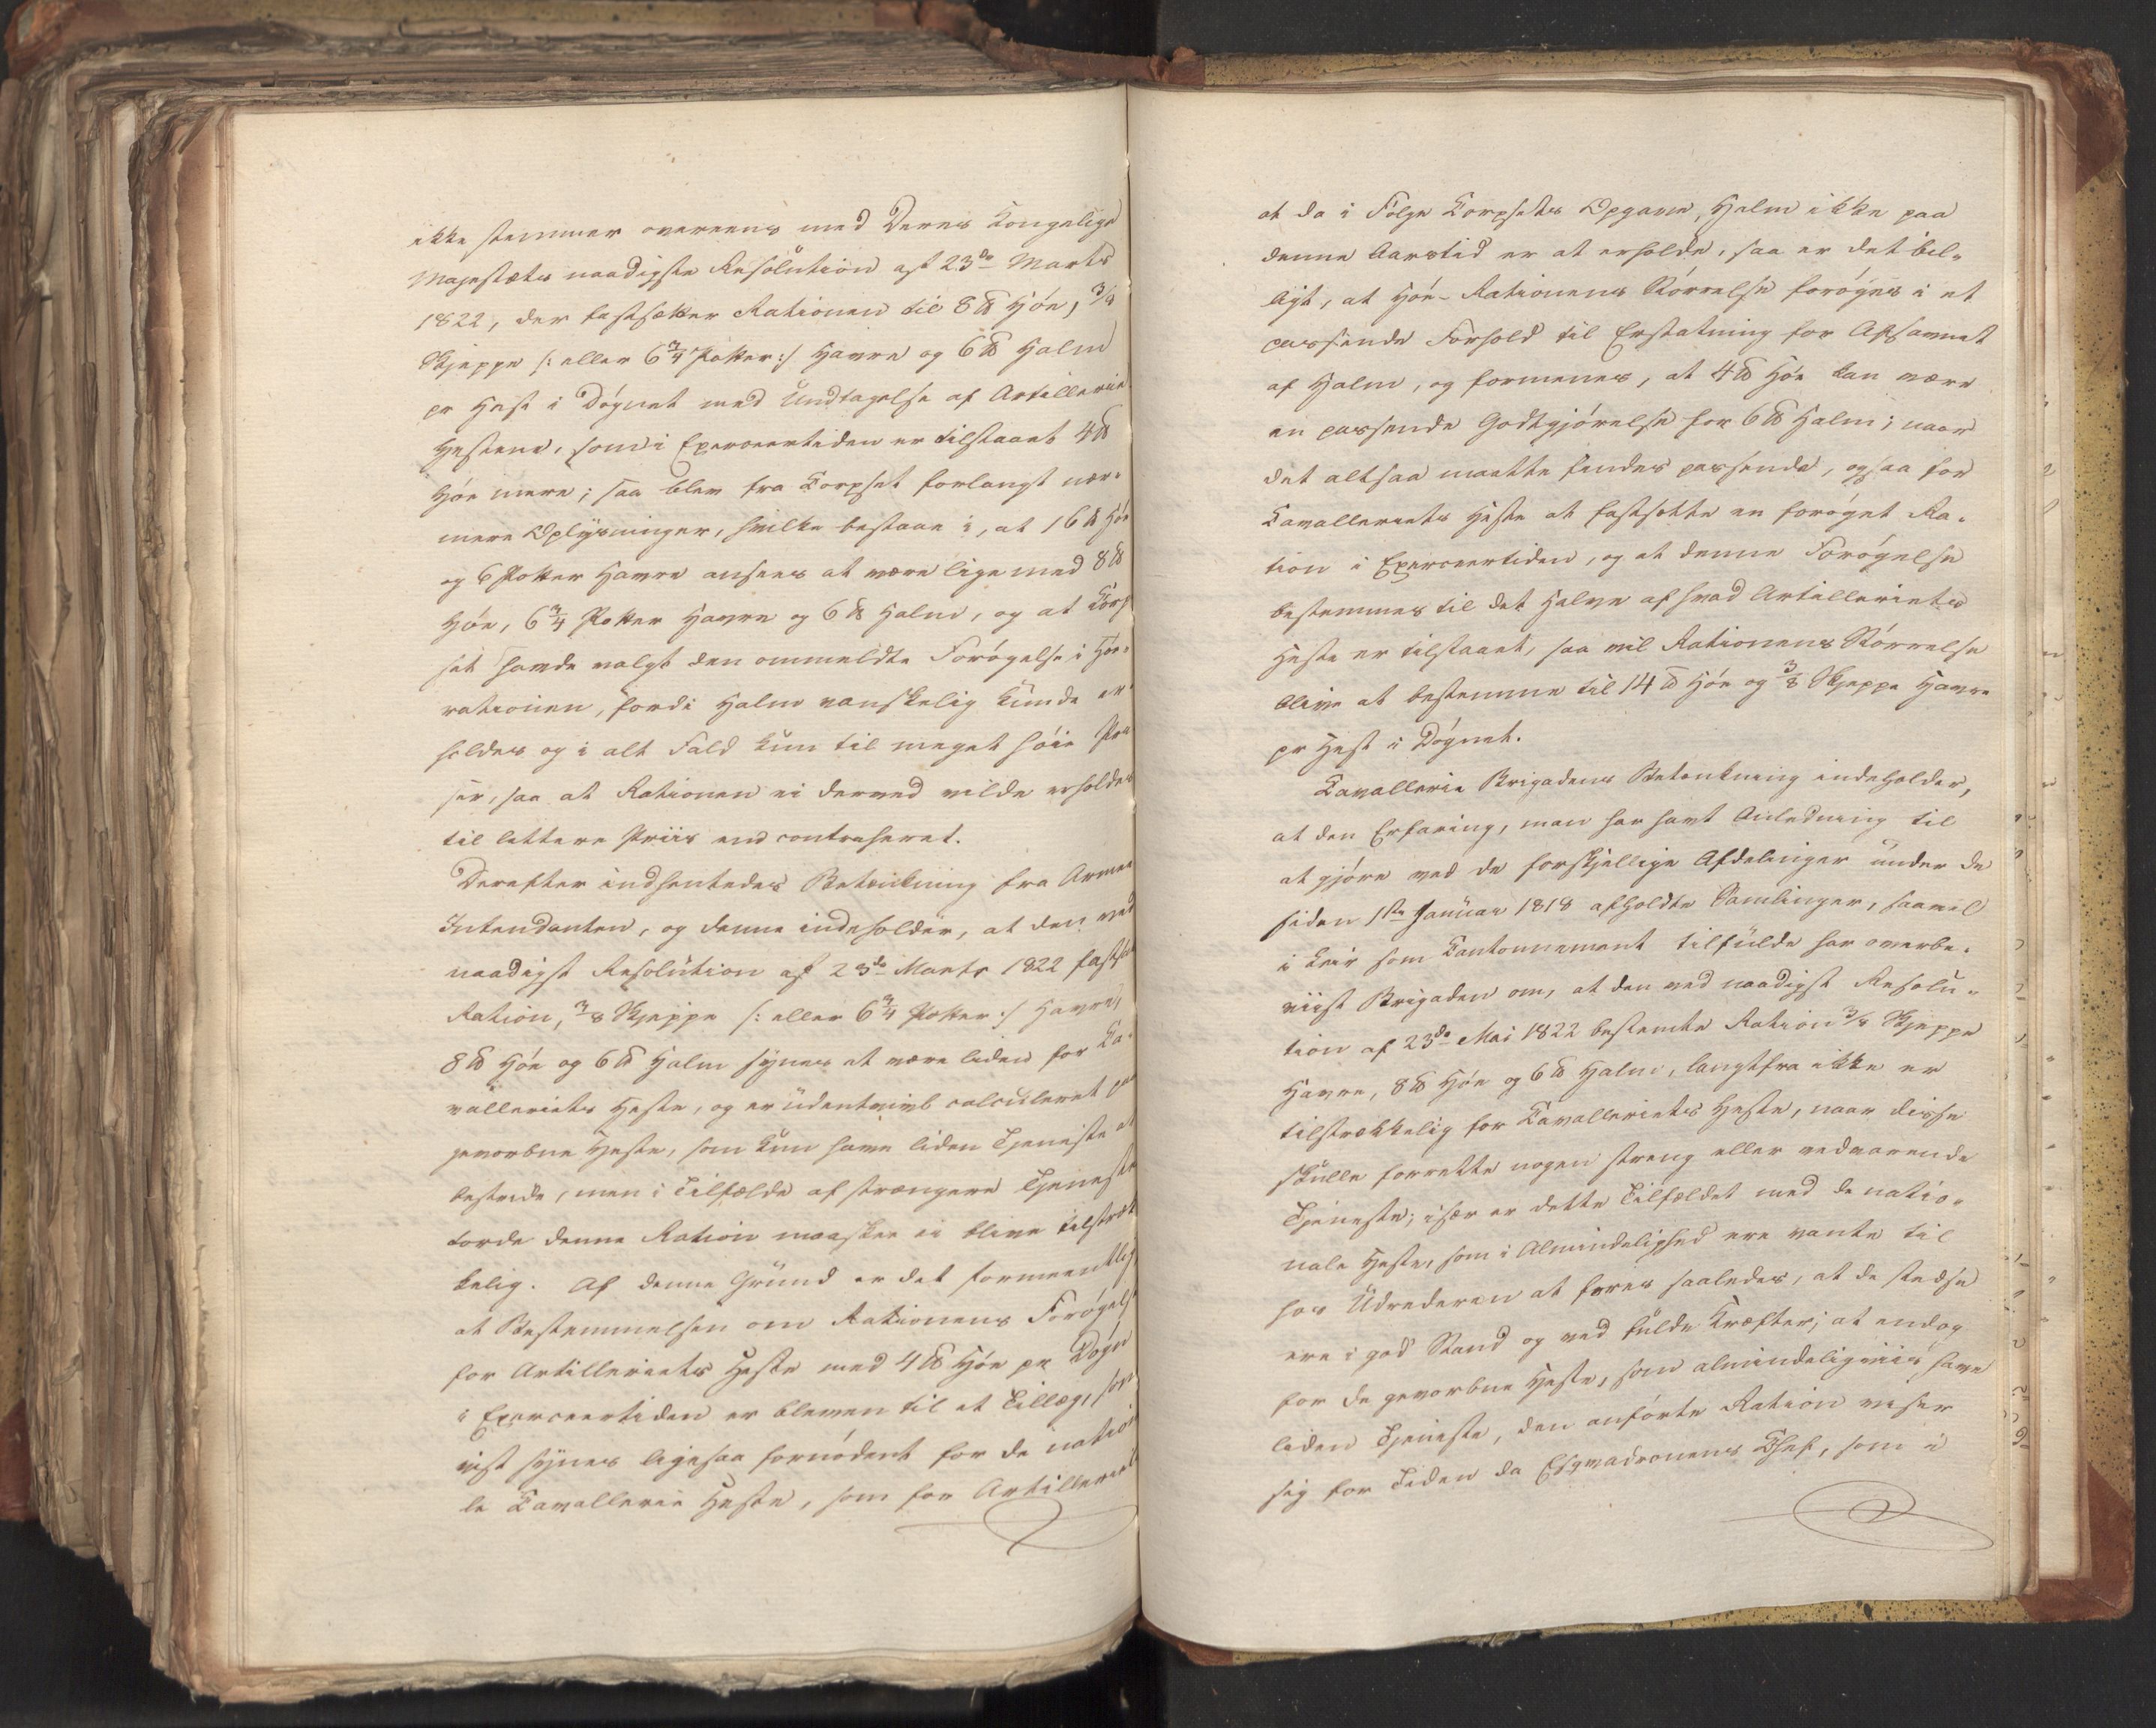 ikke stemmer overeens med Deres Kongelige
Majestæts naadigste Resolution af 23de Marts
1822, der fastsætter Rationen til 8 ℔ Høe, 3/8
Skjeppe /: eller 6 3/4 Potter :/ Havre og 6 ℔ Halm
pr Hest i Døgnet med Undtagelse af Artillerie
Hestene, som i Exerceertiden er tilstaaet 4 ℔
Høe mere; saa blev fra Corpset forlangt nær-
mere Oplysninger, hvilke bestaae i, at 16 ℔ Høe
og 6 Potter Havre ansees at være lige med 8 ℔
Høe, 6 3/4 Potter Havre og 6 ℔ Halm, og at Corp
set havde valgt den ommeldte Forøgelse i Høe-
rationen, fordi Halm vanskelig kunde er-
holdes og i alt Fald kun til meget høie Pri
ser, saa at Rationen ei derved vilde erholdes
til lettere Priis end contraheret.
Derefter indhentedes Betænkning fra Armee
Intendanten, og denne indeholder, at den ved
naadigst Resolution af 23de Marts 1822 fastsat
Ration, 3/8 Skjeppe /: eller 6 3/4 Potter :/ Havre,
8 ℔ Høe og 6 ℔ Halm synes at være liden for Ca-
valleriets Heste, og er udentvivl calculeret paa
gevorbne Heste, som kun have liden Tjeneste at
bestride, men i Tilfælde af strængere Tjeneste
torde denne Ration maaskee ei blive tilstræk
kelig. Af denne Grund er det formeentlig,
at Bestemmelsen om Rationens Forøgelse
for Artilleriets Heste med 4 ℔ Høe pr Døgn
i Exerceertiden er bleven til et Tillæg, som
vist synes ligesaa fornødent for de natio
le Cavallerie Heste, som for Artilleriets
at da i Følge Corpsets Opgave, Halm ikke paa
denne Aarstid er at erholde, saa er det bil-
ligt, at Høe-Rationens Størrelse forøges i et
passende Forhold til Erstatning for Afsavnet
af Halm, og formenes, at 4 ℔ Høe kan være
en passende Godtgjørelse for 6 ℔ Halm; naar
det altsaa maatte findes passende, ogsaa for
Cavalleriets Heste at fastsætte en forøget Ra-
tion i Exerceertiden, og at denne Forøgelse
bestemmes til det Halve af hvad Artilleriets
Heste er tilstaaet, saa vil Rationens Størrelse
blive at bestemme til 14 ℔ Høe og 3/8 Skjeppe Havre
pr Hest i Døgnet.
Cavallerie Brigadens Betænkning indeholder,
at den Erfaring, man har havt Anledning til
at gjøre ved de forskjellige Afdelinger under de
siden 1ste Januar 1818 afholdte Samlinger, saavel
i Leir som Cantonnement tilfulde har overbe-
viist Brigaden om, at den ved naadigst Resolu-
tion af 23de Mai 1822 bestemte Ration 3/8 Skjeppe
Havre, 8 ℔ Høe og 6 ℔ Halm, langtfra ikke er
tilstrækkelig for Cavalleriets Heste, naar disse
skulle forrette nogen streng eller vedvarende
Tjeneste; især er dette Tilfældet med de natio-
nale Heste, som i Almindelighed ere vante til
hos Udrederen at fores saaledes, at de stedse
ere i god Stand og ved fulde Kræfter; at endog
for de gevorbne Heste, som almindeligviis have
liden Tjeneste, den anførte Ration viser
sig for Tiden da Esqvadronens Chef, som i